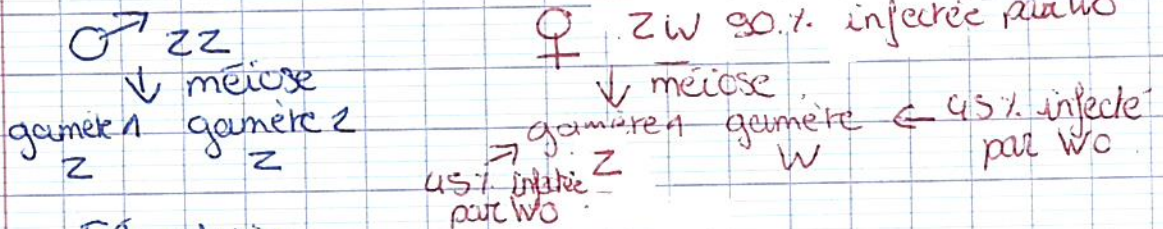 ♂ ZZ
↓ méiose
gamète 1 gamète 2
Z Z
♀ ZW 90% infectée par WO
↓ méiose
gamète 1 gamète ← 45% infecté par WO
Z W
45% infectée par WO